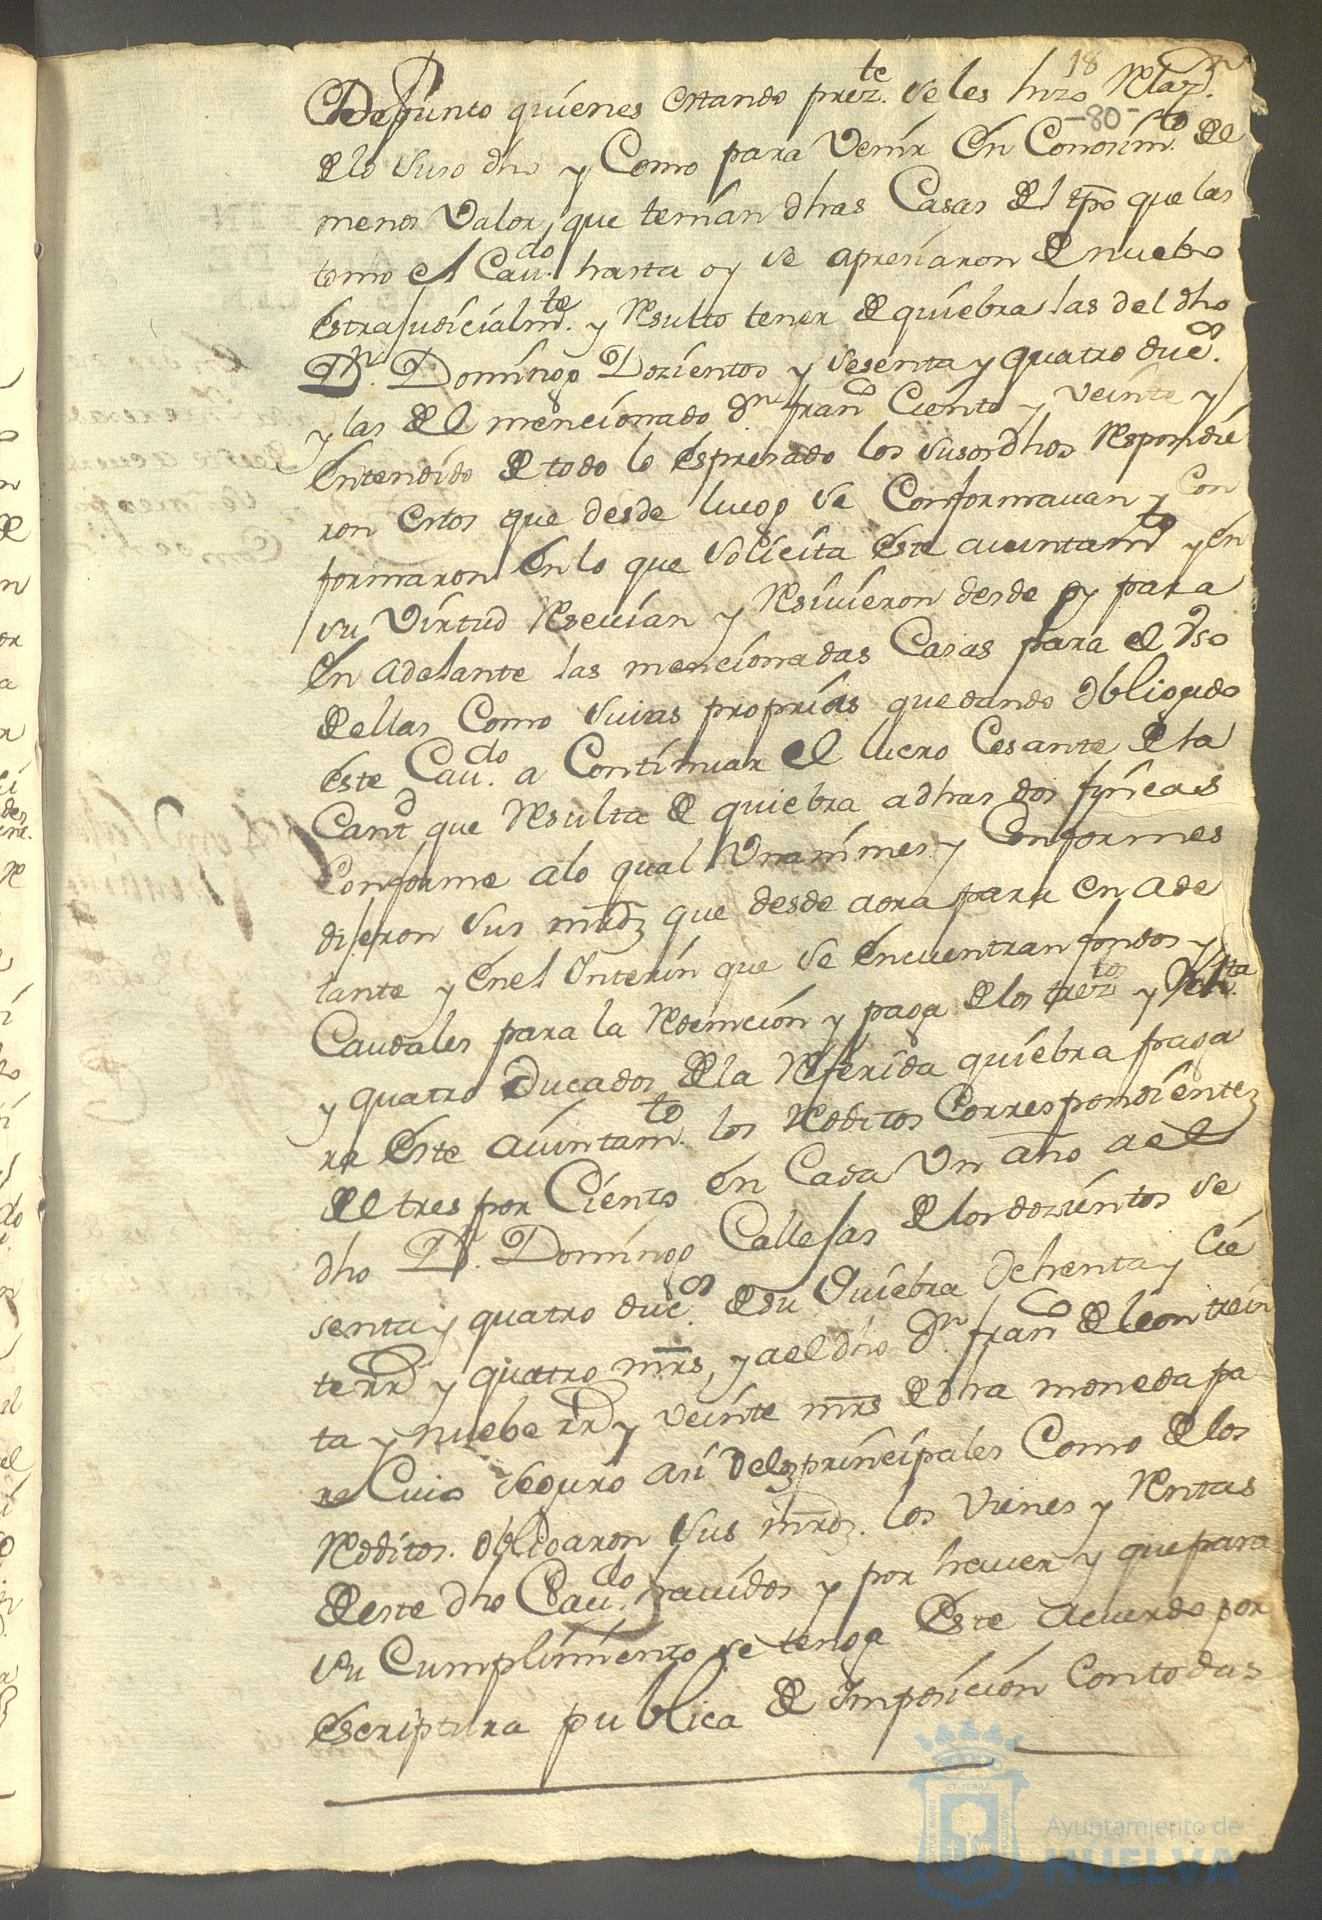 18
-80-
Depunto quienes estando prez.te se les hizo Relaz.n
de lo suso dho y Como para Venir en Conosim.to de
menos Valor, que tenian dhas Casas de el tpo que las
tomo el Cav.do hasta oy se apresiaron de nuebo
estrajudicialm.te y Resulto tener de quiebra las del dho
D.n Domingo Dozientos y sesenta y quatro duc.os
y las de el mencionado d.n fran.co Ciento y veinte y
entendido de todo lo espresado los susordhos Respondie
ron estos que desde luego se Conformavan y Con
formaron en lo que solicita este auintam.to y en
su Virtud Resevian y Resivieron desde oy para
en adelante las mencionadas Casas para el Vso
de ellas Como suias proprias quedando obligado
este Cav.do a Continuar el lucro Cesante de la
Cant.d que Resulta de quiebra a dhas dos fincas
Conforme a lo qual Vnanimes y Conformes
dijeron sus mrdz que desde aora para en ade
lante y en el Interin que se encuentran fondos y
Caudales para la Redemcion y paga de los trez.tos y och.ta
y quatro Ducados de la Referida quiebra paga
ra este auintam.to los Reditos Correspondientez
de tres por Ciento en Cada Vn año a el
dho D.n Domingo Callejas de los dozientos se
senta y quatro duc.os de su Quiebra ochenta y Cie
te rr.s y quatro mrs, y a el dho d.n fran.co de leon trein
ta y nuebe rr.s y veinte mrs de dha moneda pa
ra Cuio seguro asi de los principales Como de los
Reditos obligaron sus mrdz. los Vienes y Rentas
de este dho Cav.do havidos y por haver y que para
su Cumplimiento se tenga este acuerdo por
escriptura publica de imposicion Con todas
Ayuntamiento de
HUELVA